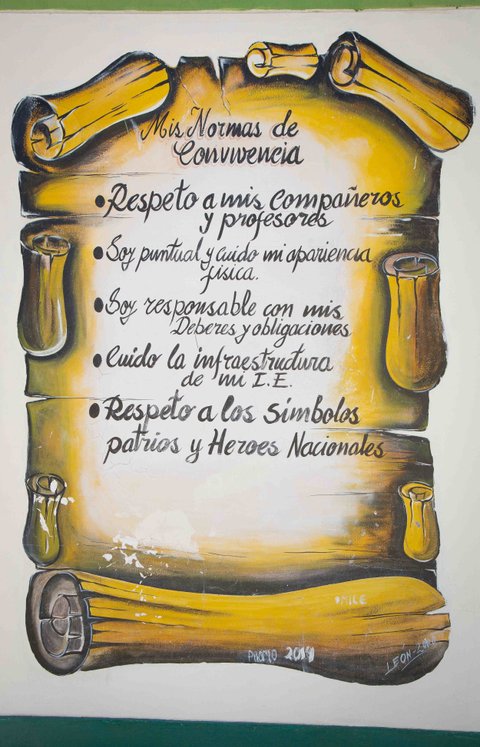 Mis Normas de
Convivencia
• Respeto a mis Compañeros
y profesores
• Soy puntual y cuido mi apariencia
física.
• Soy responsable con mis
Deberes y obligaciones
• Cuido la infraestructura
de mi I.E.
• Respeto a los símbolos
patrios y Heroes Nacionales
MILE
2014
LEÓN-